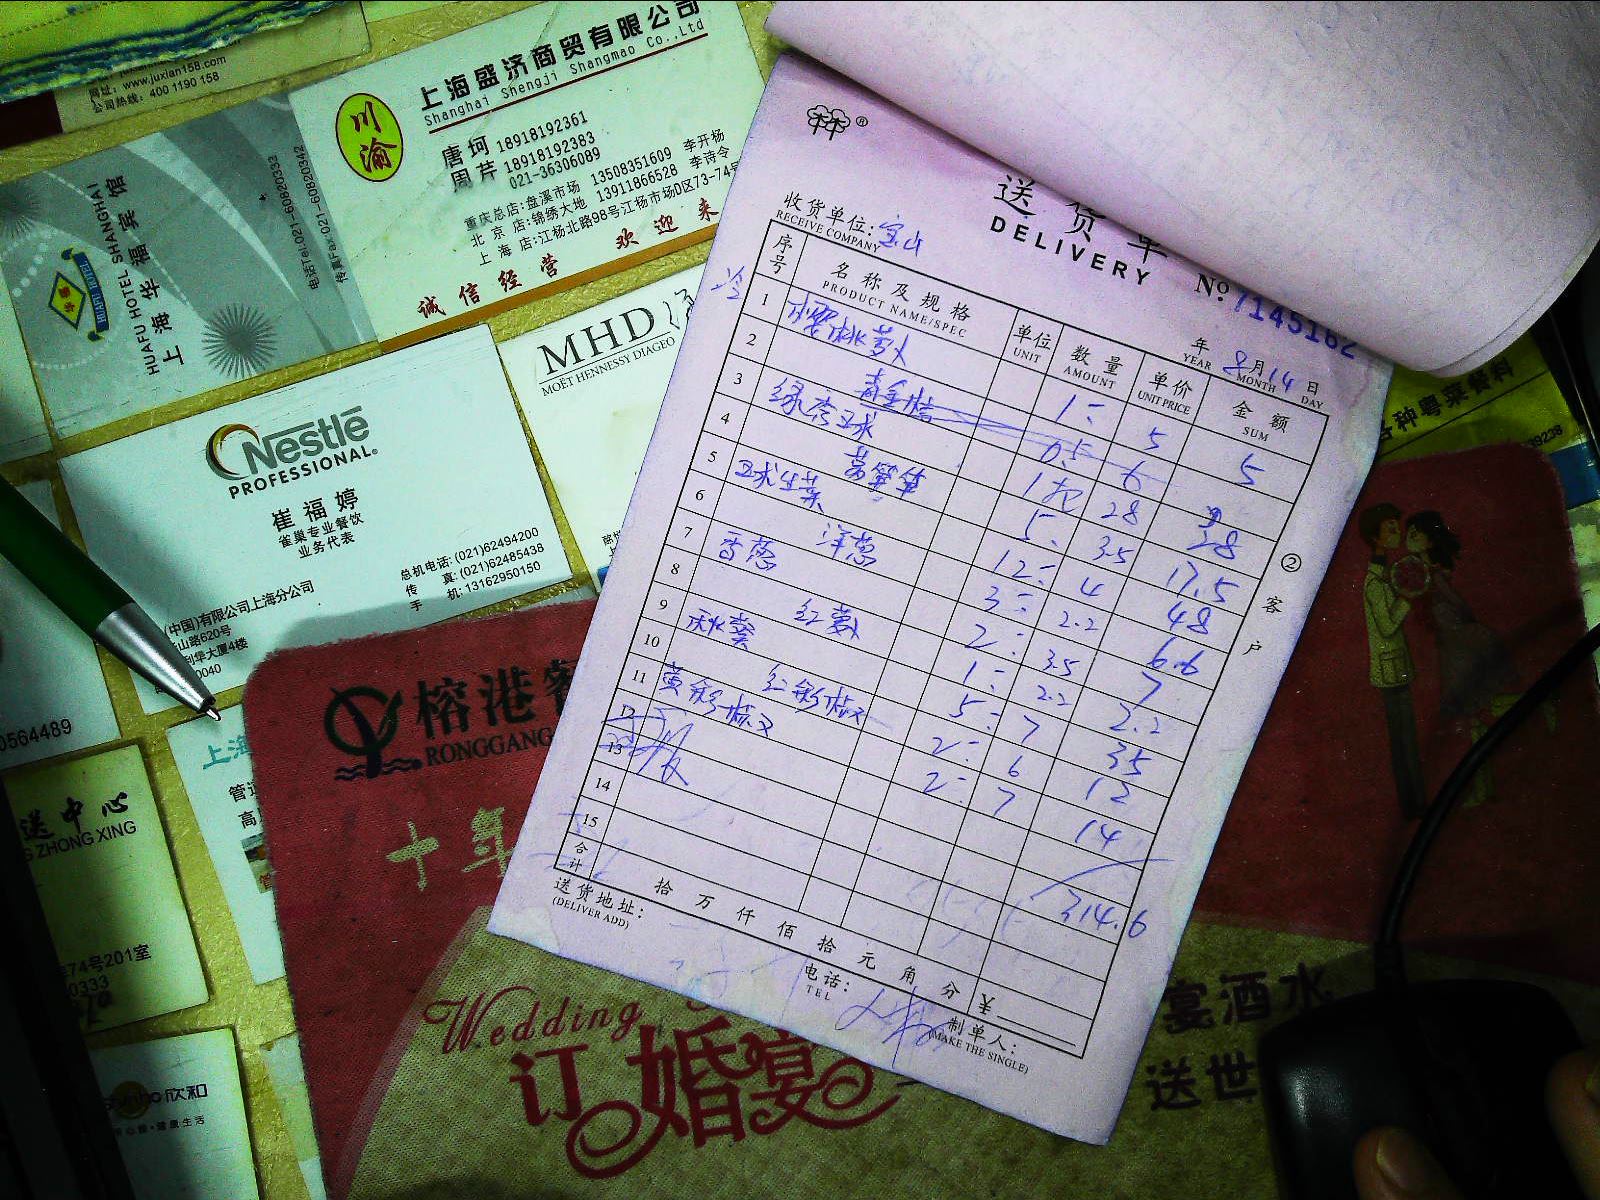 网址：www.juxian158.com
公司热线：400 1190 158
川渝
上海盛济商贸有限公司
Shanghai Shengji Shangmao Co.,Ltd
唐 珂 18918192361
周 芹 18918192383
021-36306089
重庆总店:盘溪市场 13508351609 李开杨
北 京 店:锦绣大地 13911866528 李诗令
上 海 店:江杨北路98号江杨市场D区73-74号
诚信经营 欢迎来
HUAFU HOTEL SHANGHAI
上海华福宾馆
HUAFU HOTEL
电话Tel:021-60820333
传真Fax:021-60820342
MHD
MOËT HENNESSY DIAGEO
Nestlé
PROFESSIONAL.
崔福婷
雀巢专业餐饮
业务代表
总机电话: (021)62494200
传 真: (021)62485438
手 机: 13162950150
(中国)有限公司上海分公司
山路620号
利华大厦4楼
0040
0564489
送中心
G ZHONG XING
74号201室
0333
欣和
上海
管
高
榕港
RONGGANG
十年
Wedding
订婚宴
宴酒水
送世
各种粤菜餐料
39238
送货单
DELIVERY
№ 7145162
收货单位: 宝山
RECEIVE COMPANY
年 8月14日
YEAR MONTH DAY
序号 名称及规格 单位 数量 单价 金额
PRODUCT NAME/SPEC UNIT AMOUNT UNIT PRICE SUM
冷
1 樱桃萝卜 1 5 5
2 0.5 6
3 1 28 28
4 莴笋 5 3.5 17.5
5 球生菜 12 4 48
6 洋葱 3 2.2 6.6
7 香葱 2 3.5 7
8 红萝卜 1 2.2 2.2
9 秋葵 5 7 35
10 红彩椒 2 6 12
11 黄彩椒 2 7 14
12
13
14 314.6
15
合计 拾 万 仟 佰 拾 元 角 分 ¥
送货地址:
(DELIVER ADD)
电话:
TEL
制单人:
(MAKE THE SINGLE)
② 客户